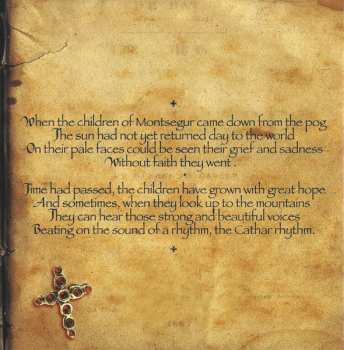 When the children of Montsegur came down from the pog
The sun had not yet returned day to the world
On their pale faces could be seen their grief and sadness
Without faith they went .
Time had passed, the children have grown with great hope
And sometimes, when they look up to the mountains
They can hear those strong and beautiful voices
Beating on the sound of a rhythm, the Cathar rhythm.